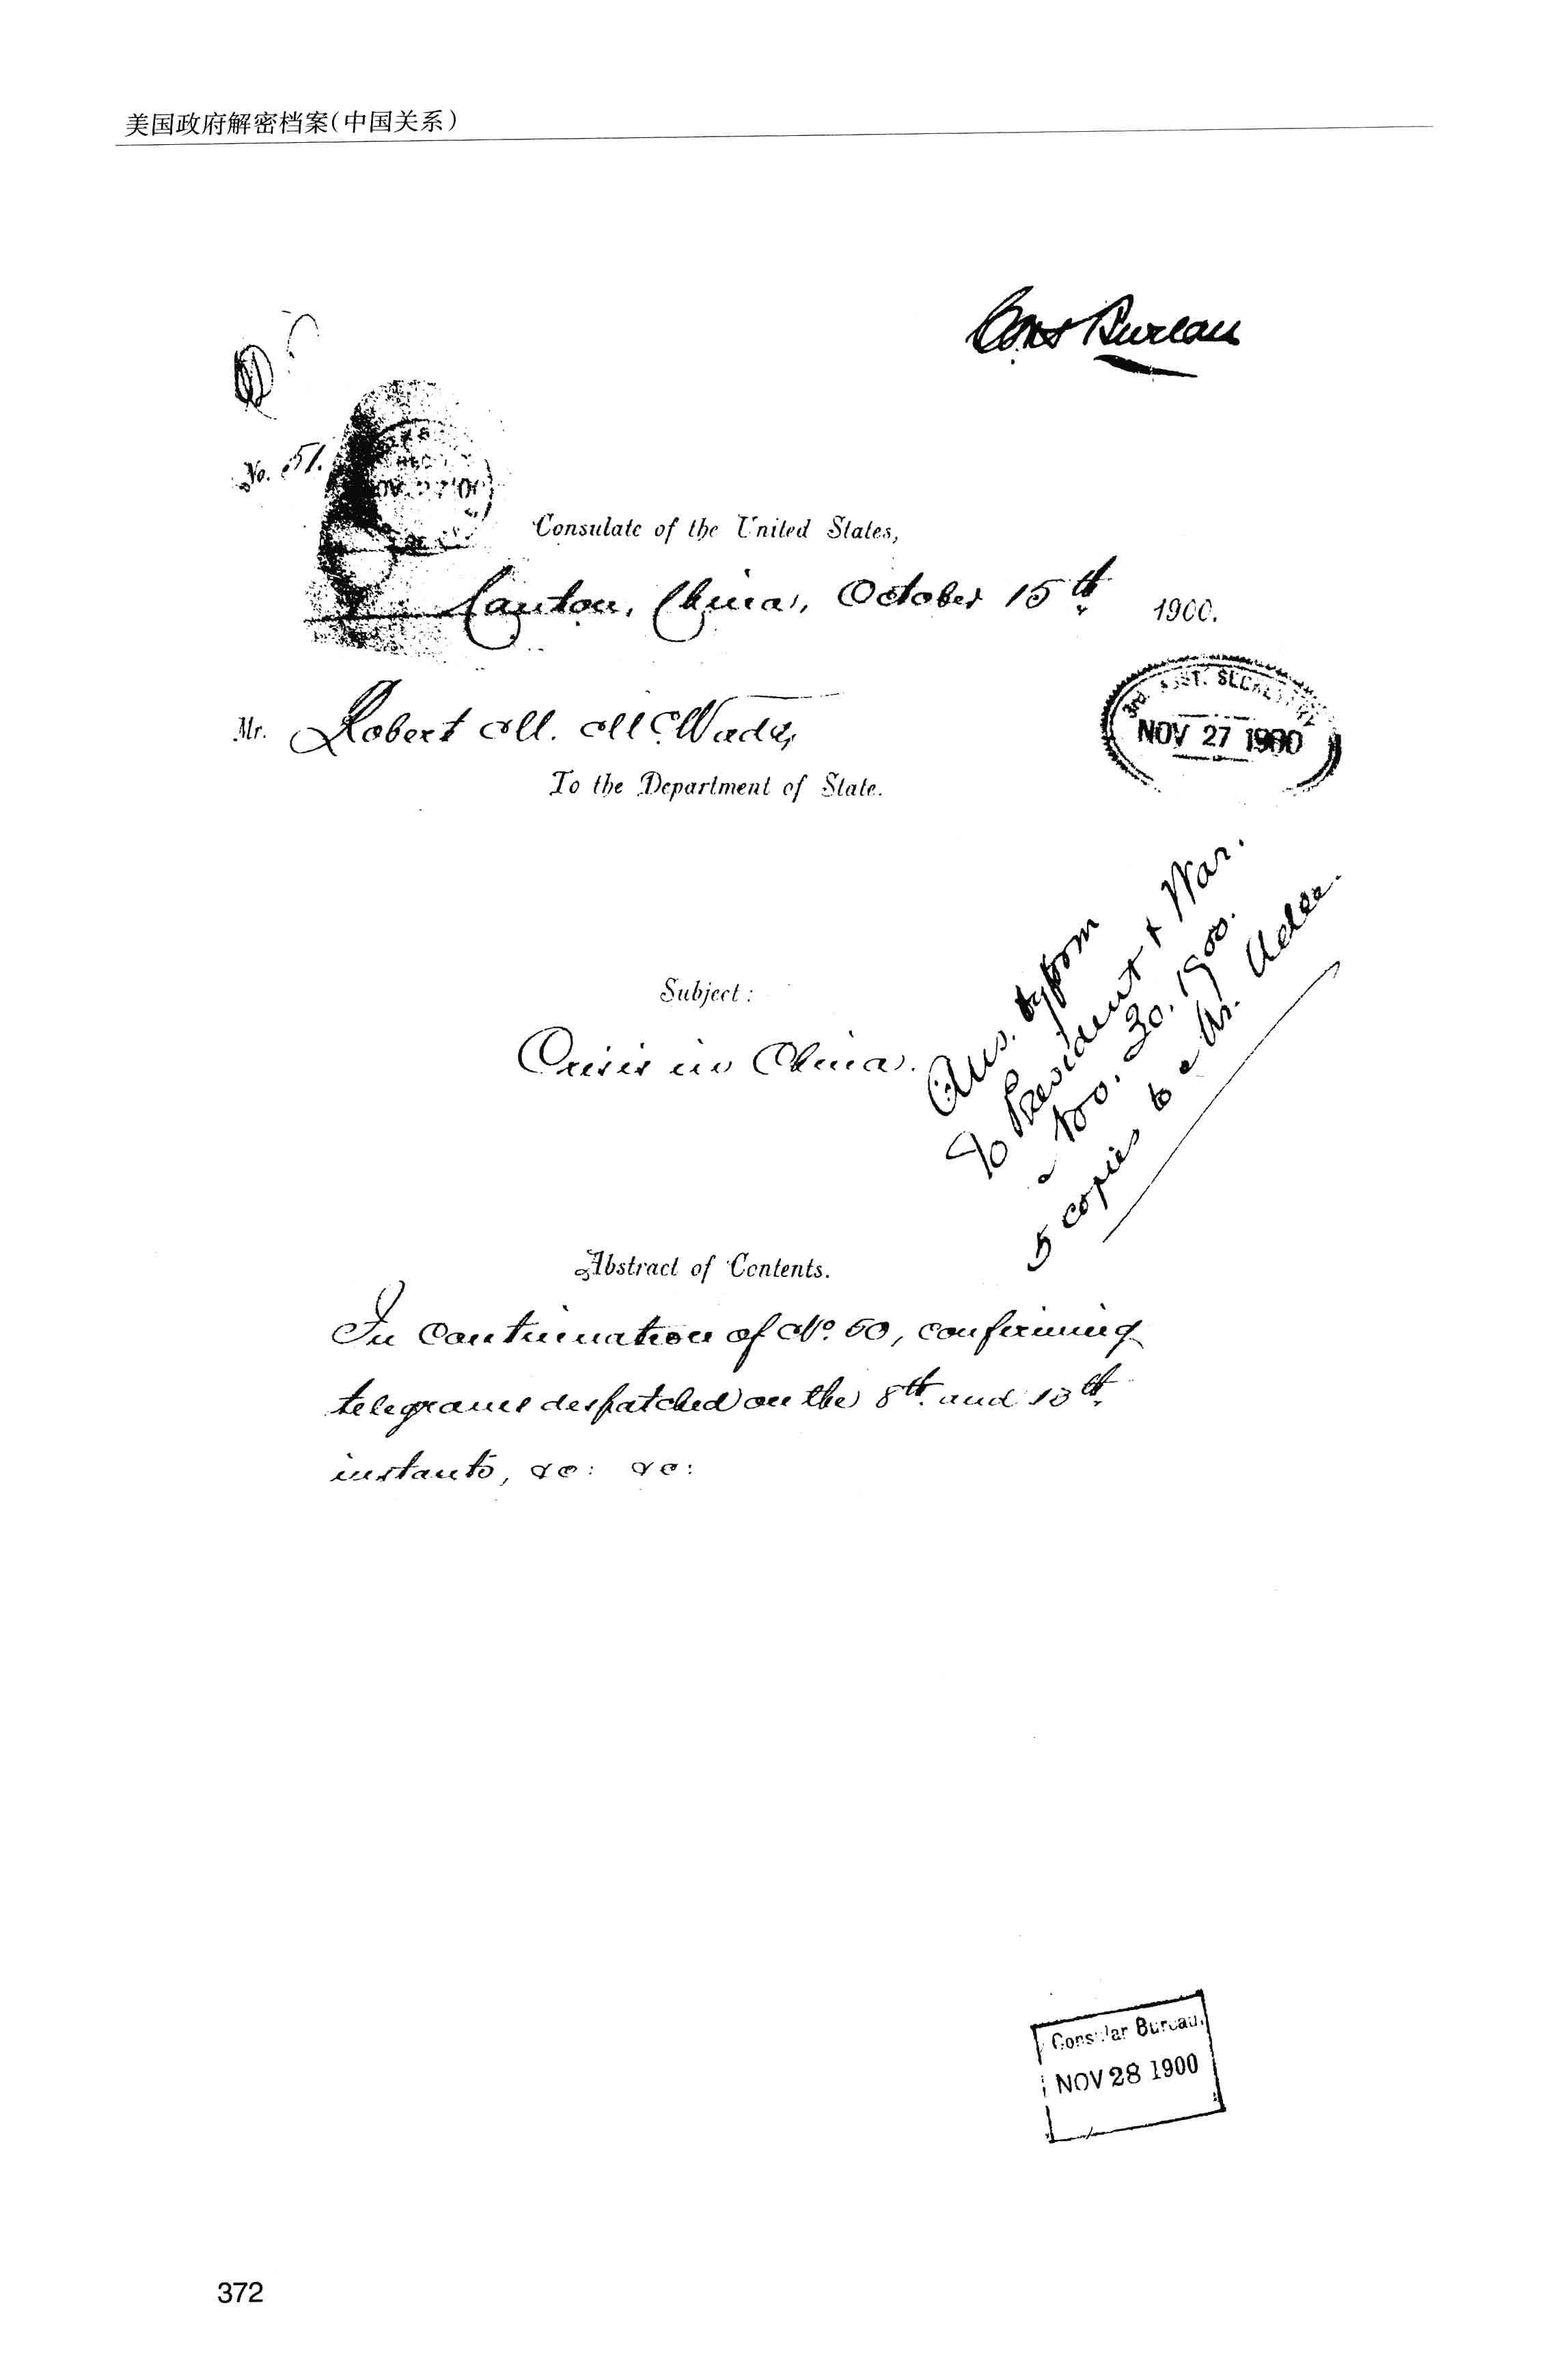 美国政府解密档案(中国关系)
Cons Bureau
No. 51.
Consulate of the United States,
Canton, China, October 15th 1900.
3rd ASST. SECRETARY
NOV 27 1900
Mr. Robert M. McWade,
To the Department of State.
To President & War.
30, 1900.
5 copies to
Subject:
Crisis in China.
Abstract of Contents.
In continuation of No. 50, confirming
telegrams despatched on the 8th and 13th
instants, &c: &c:
Consular Bureau,
NOV 28 1900
372